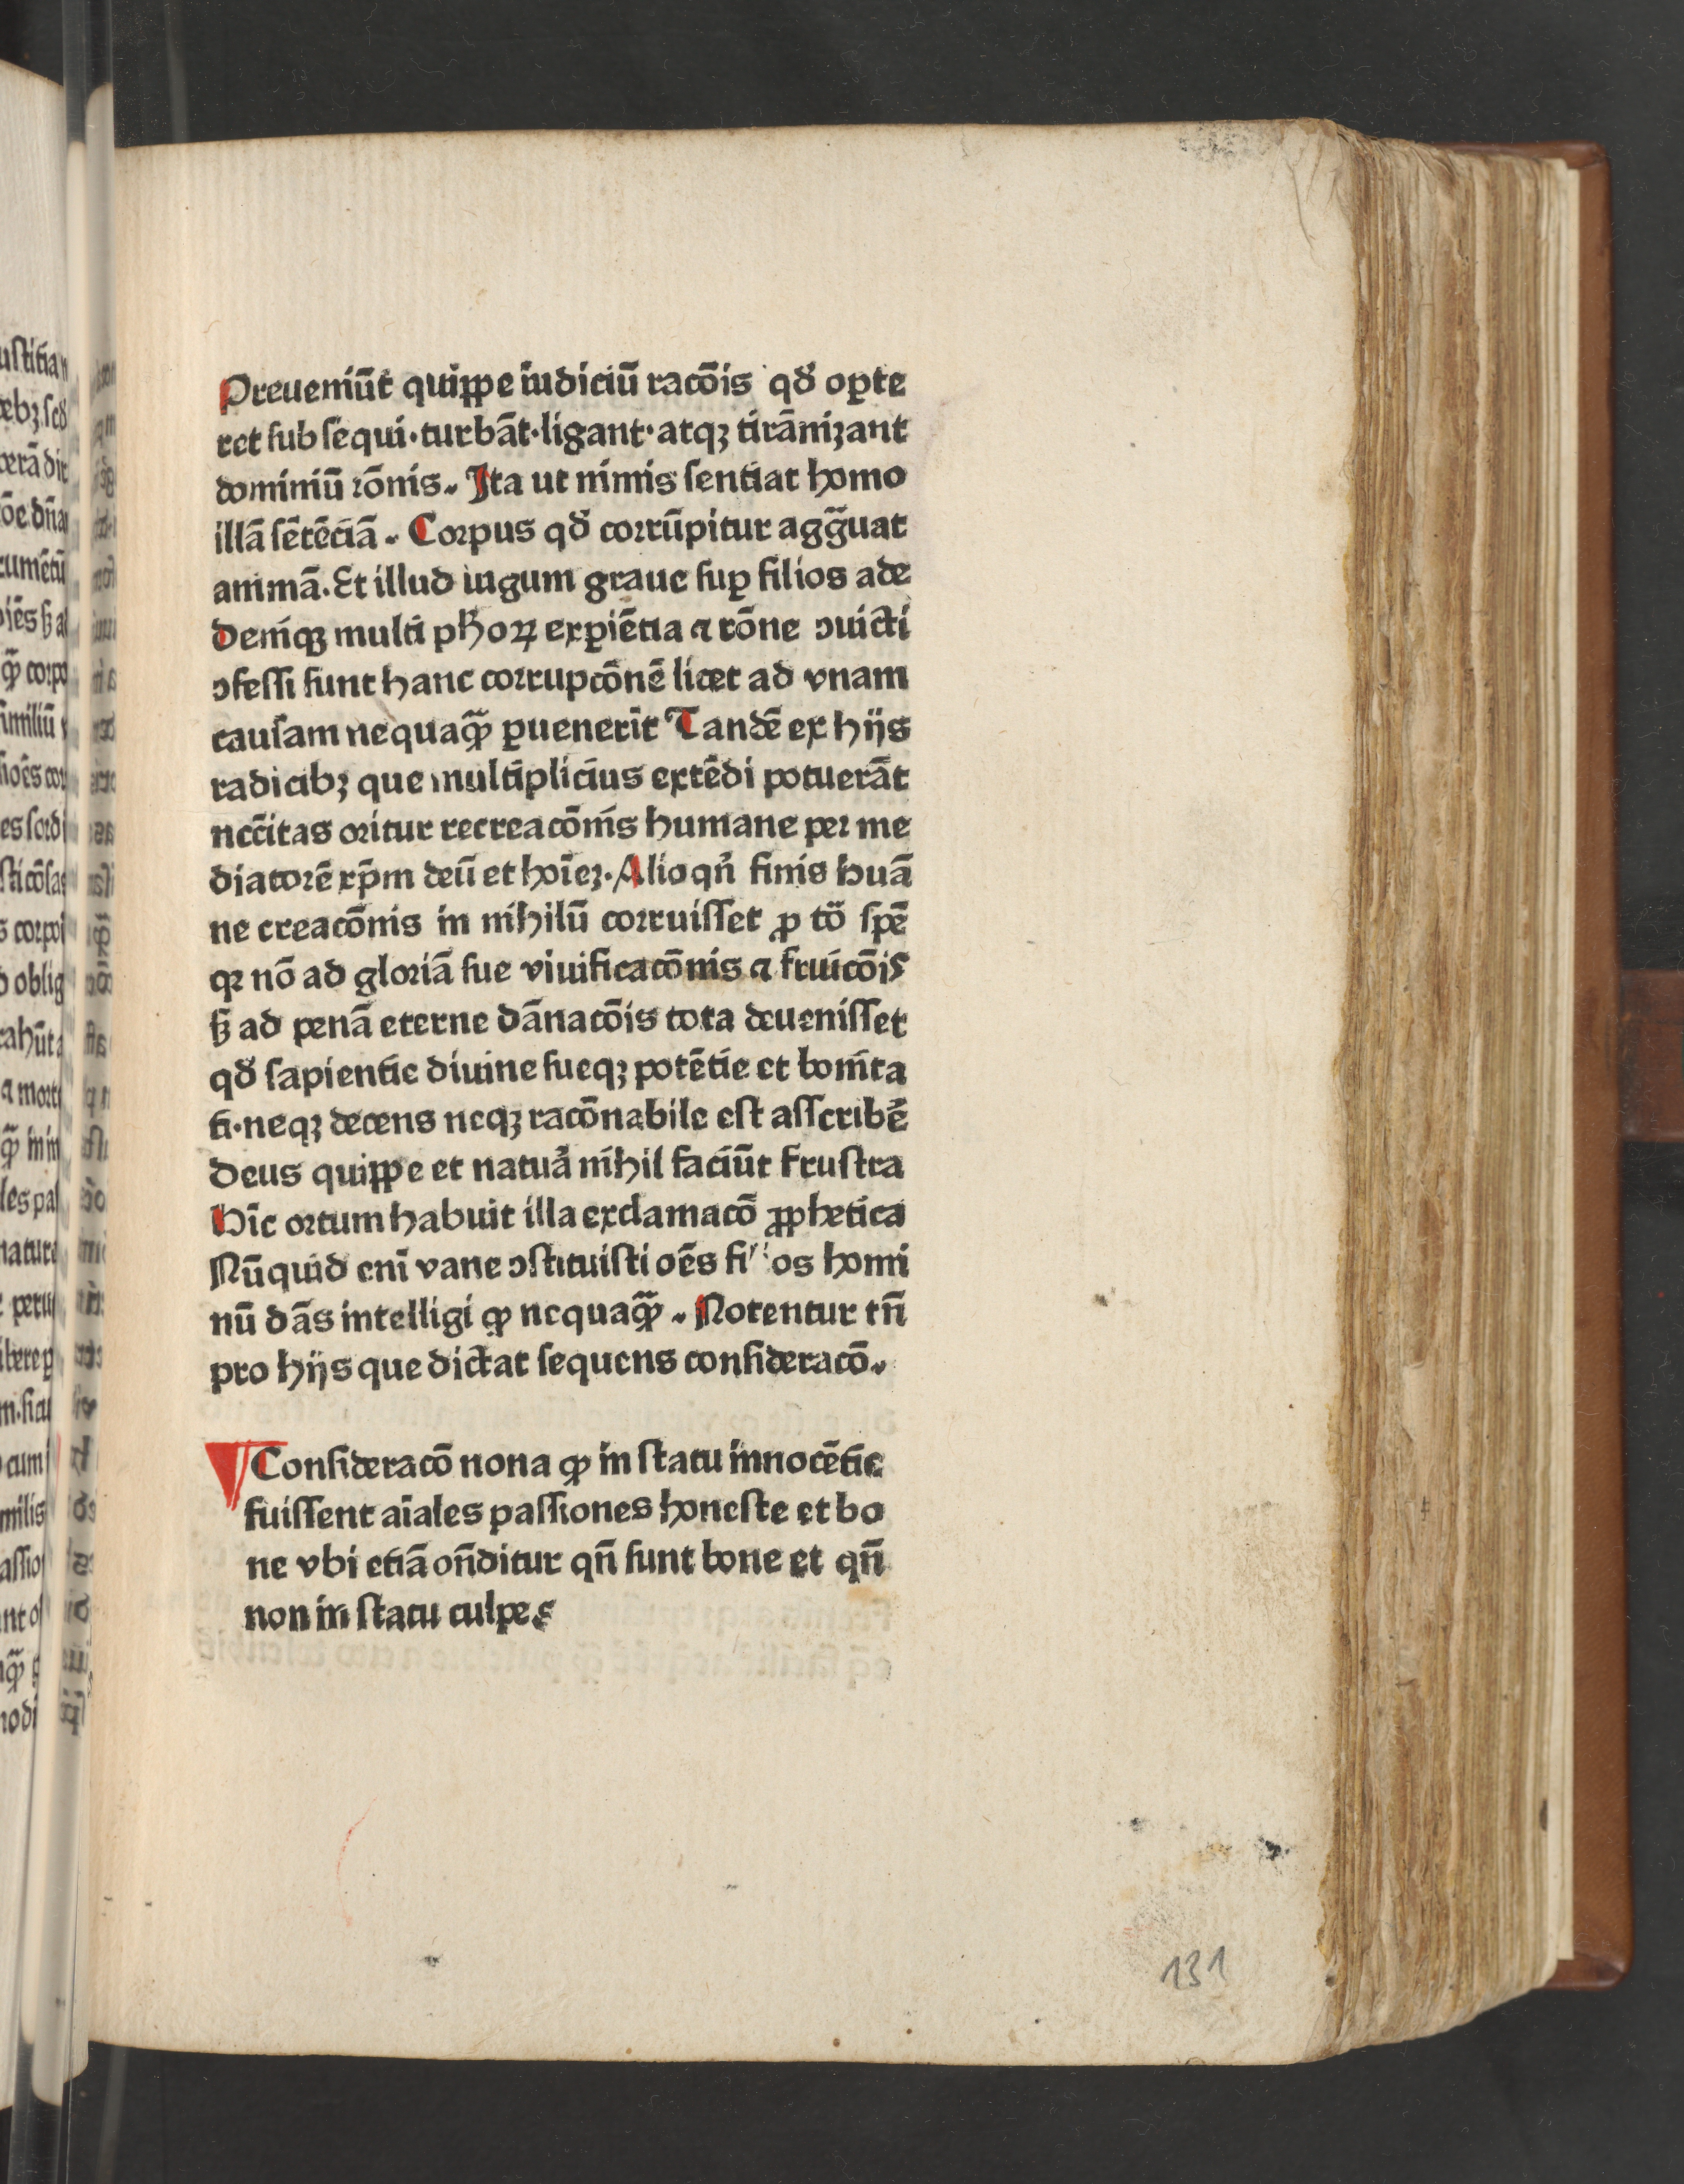 Preueniūt quippe iudiciū racōis qđ oꝑte
ret subsequi·turbāt·ligant·atqꝫ tirānizant
dominiū rōnis. Ita ut nimis sentiat homo
illā sētēciā. Corpus qđ corrūpitur agg̃uat
animā. Et illud iugum graue suꝑ filios ade
Deniqꝫ multi pħoꝝ exꝑiētia ⁊ rōne ↄuicti
ↄfessi sunt hanc corrupcōnē licet ad vnam
causam nequaꝙ̃ ꝑuenerīt Tandē ex hijs
radicibꝫ que multiplicius extēdi potuerāt
nc̄citas oritur recreacōnis humane per me
diatorē xp̄m deū et hoīeꝫ. Alioqn̄ finis huā
ne creacōnis in nihilū corruisset ꝓ tō spē
qꝛ nō ad gloriā sue viuificacōnis ⁊ fruicōis
sꝫ ad penā eterne dānacōis tota deuenisset
qđ sapientie diuine sueqꝫ potētie et bonita
ti·neqꝫ decens neqꝫ racōnabile est asscribē
Deus quippe et natuā nihil faciūt frustra
Hīc ortum habuit illa exclamacō ꝓphetica
Nūquid enī vane ↄstituisti oēs filios homi
nū dās intelligi ꝙ nequaꝙ̃. Notentur tn̄
pro hijs que dictat sequens consideracō.
Consideracō nona ꝙ in statu innocētie
fuissent aīales passiones honeste et bo
ne vbi etiā on̄ditur qn̄ sunt bone et qn̄
non in statu culpe
131